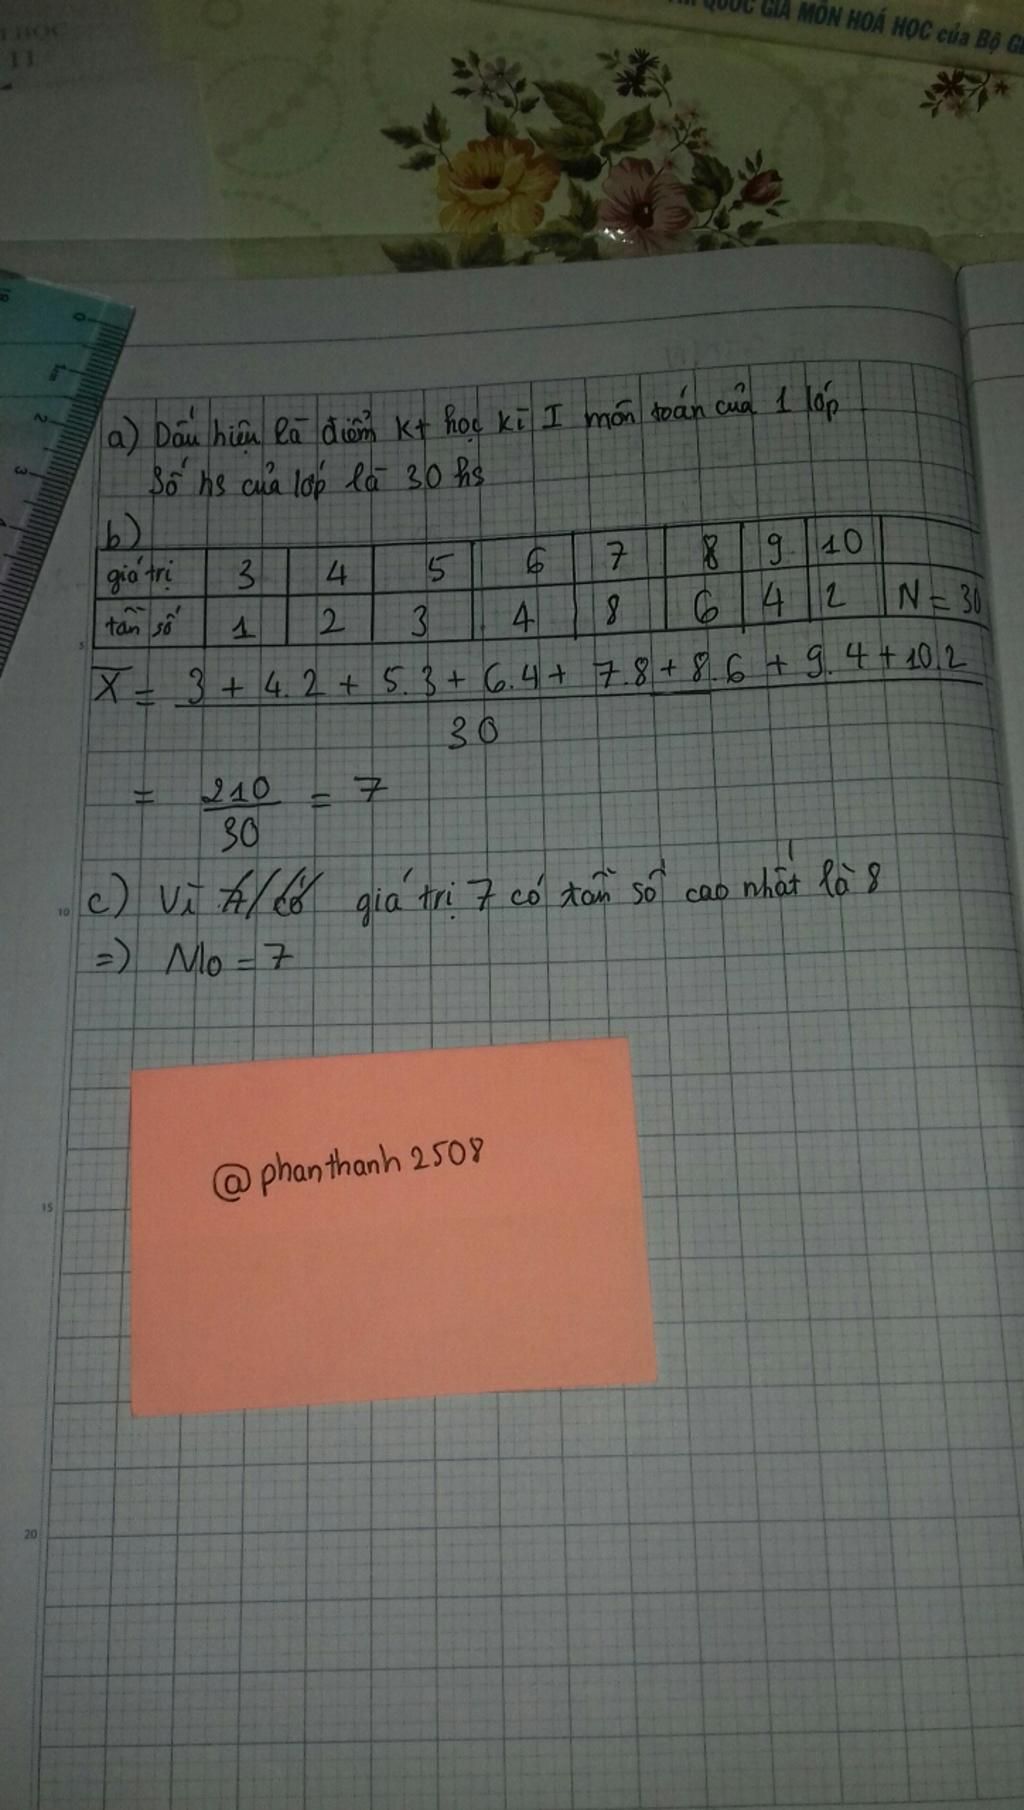 QUỐC GIA MÔN HOÁ HỌC của Bộ G
11
a) Dấu hiệu là điểm kt học kì I môn toán của 1 lớp
Số hs của lớp là 30 hs
b)
giá trị 3 4 5 6 7 8 9 10
tần số 1 2 3 4 8 6 4 2 N = 30
X̄ = 3 + 4.2 + 5.3 + 6.4 + 7.8 + 8.6 + 9.4 + 10.2
30
= 210/30 = 7
c) Vì giá trị 7 có tần số cao nhất là 8
=) Mo = 7
@phanthanh2508
0
1
2
3
4
5
10
15
20